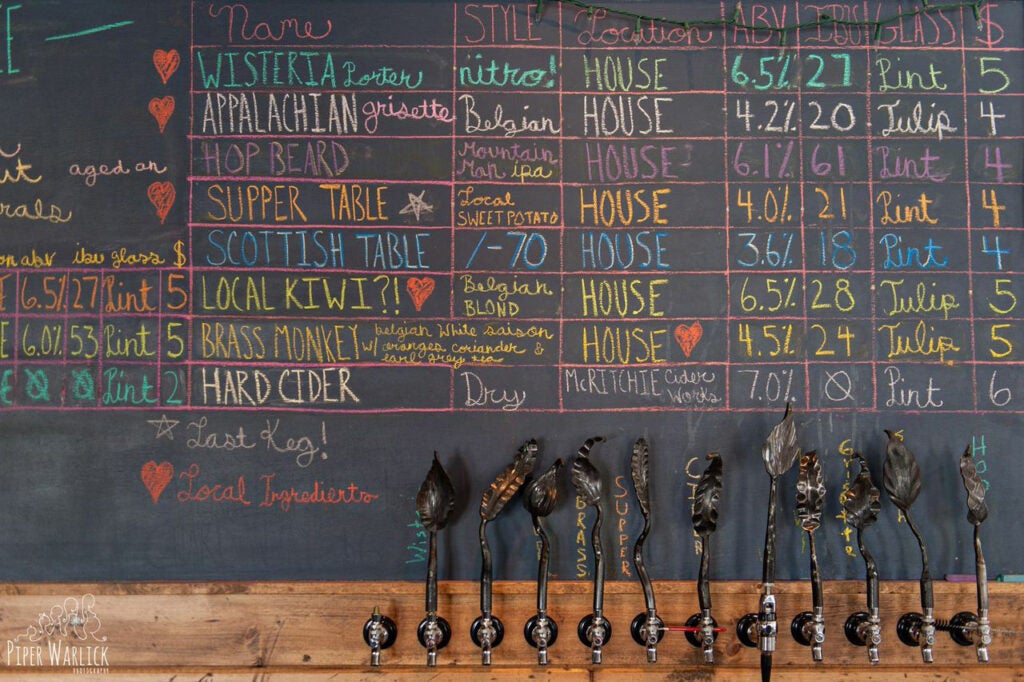 Name STYLE Location ABV IBU GLASS $
WISTERIA Porter nitro! HOUSE 6.5% 27 Pint 5
APPALACHIAN grisette Belgian HOUSE 4.2% 20 Tulip 4
HOP BEARD Mountain Man ipa HOUSE 6.1% 61 Pint 4
aged on
SUPPER TABLE Local SWEET POTATO HOUSE 4.0% 21 Pint 4
SCOTTISH TABLE /-70 HOUSE 3.6% 18 Pint 4
on abv ibu glass $
6.5% 27 Pint 5 LOCAL KIWI?! Belgian BLOND HOUSE 6.5% 28 Tulip 5
6.0% 53 Pint 5 BRASS MONKEY belgian white saison w/ oranges coriander & earl grey tea HOUSE 4.5% 24 Tulip 5
Ø Ø Pint 2 HARD CIDER Dry McRITCHIE Cider Works 7.0% Ø Pint 6
Last Keg!
Local Ingredients
BRASS
SUPPER
PIPER WARLICK
PHOTOGRAPHY